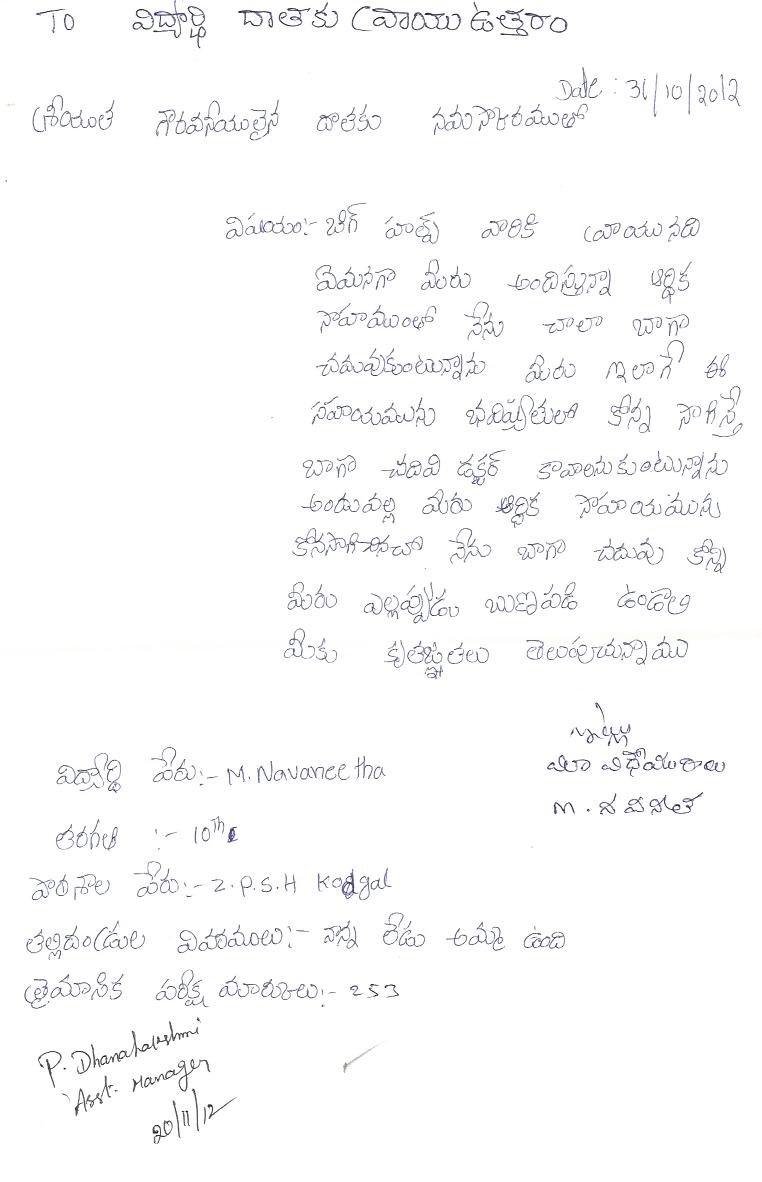 TO విద్యార్థి దాతకు వ్రాయు ఉత్తరం
Date : 31/10/2012
శ్రీయుత గౌరవనీయులైన దాతకు నమస్కారములతో
విషయం:- బిగ్ హెల్ప్ వారికి వ్రాయునది
ఏమనగా మీరు అందిస్తున్నా ఆర్థిక
సోహాముంతో నేను చాలా బాగా
చదువుకుంటున్నాను మీరు ఇలాగే ఈ
సహాయమును భవిష్యతులో కోన్న సాగిస్తే
బాగా చదివి డక్టర్ కావాలనుకుంటున్నాను
అందువల్ల మీరు ఆర్థిక సోహాయమును
కోనసాగించినచో నేను బాగా చదువు కోన్ని
మీరు ఎల్లప్పుడు ఋణపడి ఉండాలి
మీకు కృతజ్ఞతలు తెలుపుచున్నాము
ఇట్లు
మీ విధేయురాలు
M. నవనీత
విద్యార్థి పేరు:- M. Navaneetha
తరగతి :- 10th
పాఠశాల పేరు:- Z.P.S.H Kodgal
తల్లిదండ్రుల వివాములు:- నాన్న లేడు అమ్మ ఉంది
త్రైమాసిక పరీక్ష మార్కులు:- 253
P. Dhanalakshmi
Asst. Manager
20/11/12